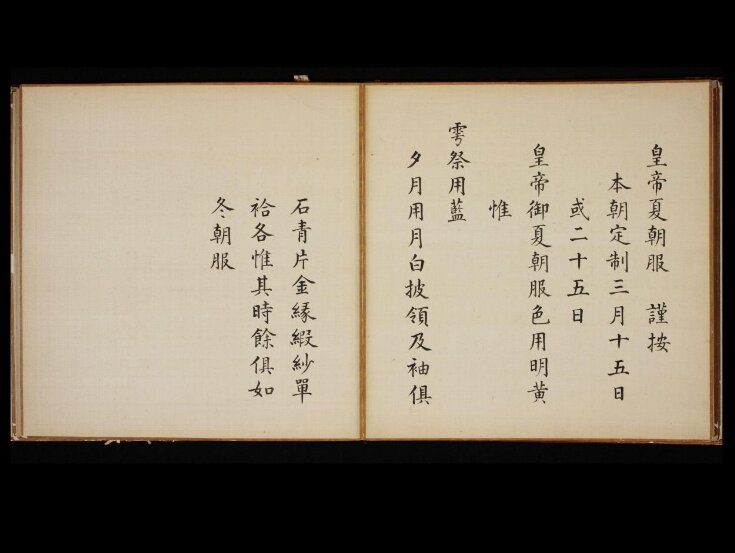 皇帝夏朝服　謹按
本朝定制三月十五日
或二十五日
皇帝御夏朝服色用明黄
惟
雩祭用藍
夕月用月白披領及袖俱
石青片金緣縀紗單
袷各惟其時餘俱如
冬朝服